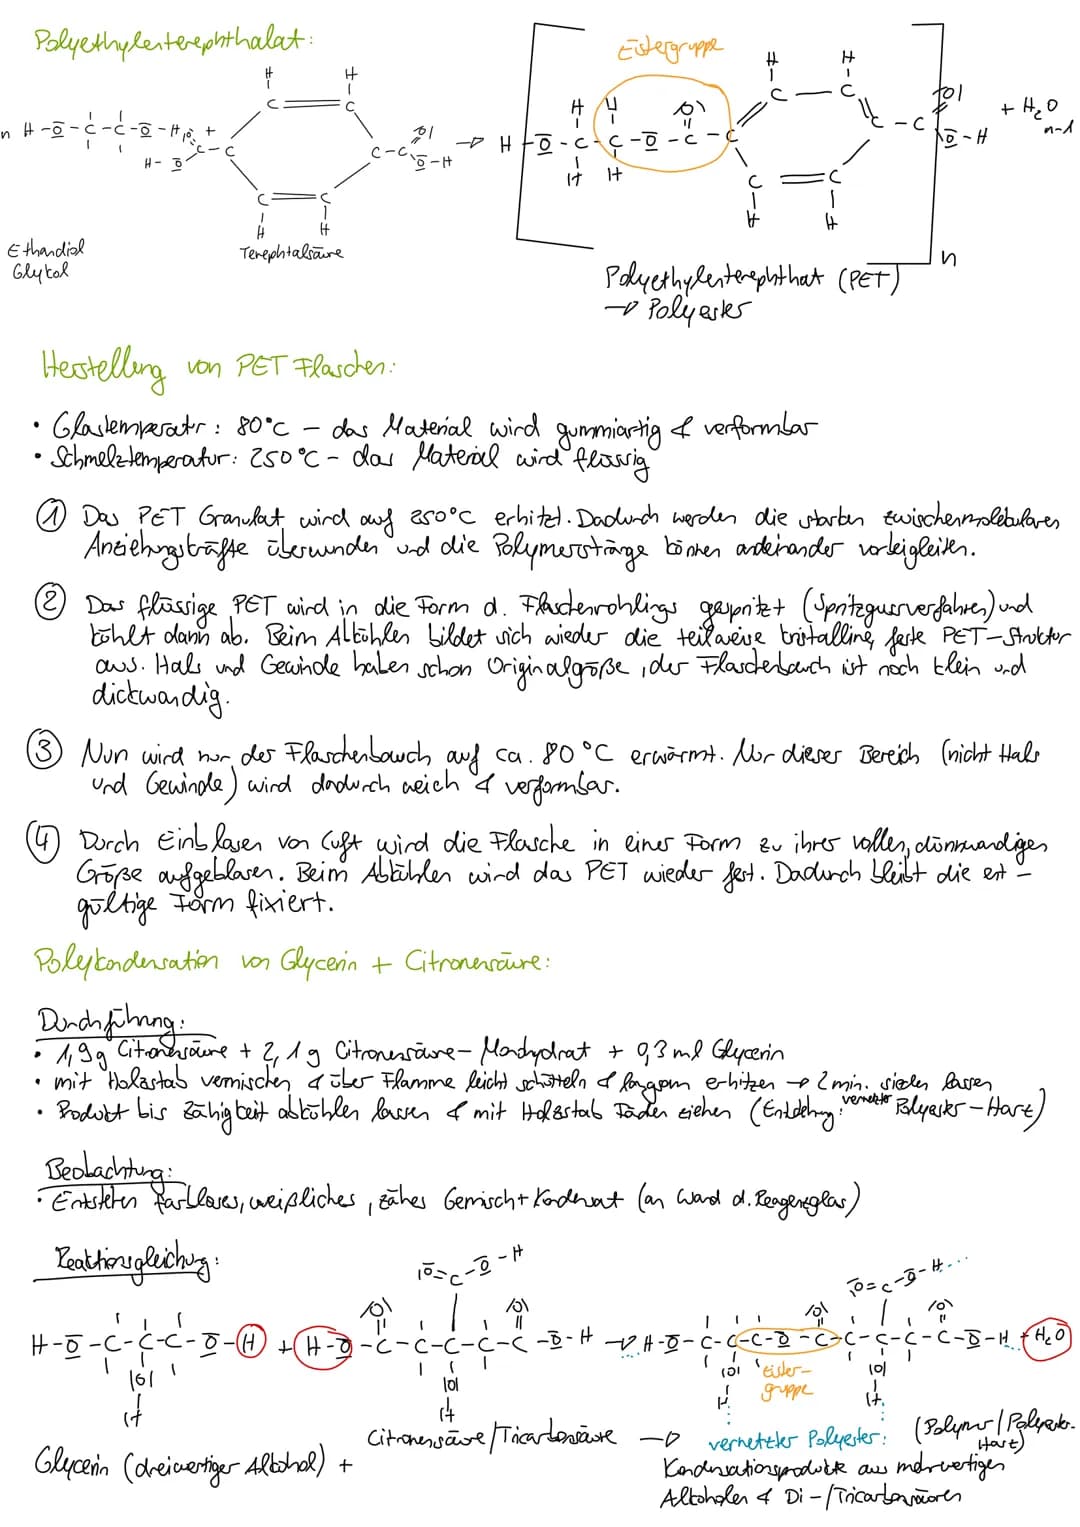 Polyethylenterephthalat:
Estergruppe
n H-O-C-C-O-H +
+ H₂O
n-1
Ethandiol
Glykol
Terephtalsäure
n
Polyethylenterephthat (PET)
→ Polyester
Herstellung von PET Flaschen:
• Glastemperatr: 80°C – das Material wird gummiartig & verformbar
• Schmelztemperatur: 250°C – das Material wird flüssig
① Das PET Granulat wird auf 250°C erhitzt. Dadurch werden die starken zwischenmolekularen
Anziehungskräfte überwunden und die Polymerstränge können aneinander vorbeigleiten.
② Das flüssige PET wird in die Form d. Flaschenrohlings gespritzt (Spritzgussverfahren) und
kühlt dann ab. Beim Abkühlen bildet sich wieder die teilweise kristalline, feste PET-Struktur
aus. Hals und Gewinde haben schon Originalgröße, der Flaschenbauch ist noch klein und
dickwandig.
③ Nun wird nur der Flaschenbauch auf ca. 80°C erwärmt. Nur dieser Bereich (nicht Hals
und Gewinde) wird dadurch weich & verformbar.
④ Durch Einblasen von Luft wird die Flasche in einer Form zu ihrer vollen, dünnwandigen
Größe aufgeblasen. Beim Abkühlen wird das PET wieder fest. Dadurch bleibt die ent-
gültige Form fixiert.
Polykondensation von Glycerin + Citronensäure:
Durchführung:
• 1,9g Citronensäure + 2,1g Citronensäure-Monhydrat + 0,3 ml Glycerin
• mit Holzstab vermischen & über Flamme leicht schütteln & langsam erhitzen → 2 min. sieden lassen
• Produkt bis Zähigkeit abkühlen lassen & mit Holzstab Fäden ziehen (Entstehung: vernetzter Polyester-Harz)
Beobachtung:
• Entstehen farbloses, weißliches, zähes Gemisch + Kondensat (an Wand d. Reagenzglas)
Reaktionsgleichung:
H-O-C-C-C-O-H + H-O-C-C-C-C-C-O-H → H-O-C-C-C-O-C-C-C-C-C-O-H + H₂O
Ester-
gruppe
Glycerin (dreiwertiger Alkohol) +
Citronensäure/Tricarbonsäure →
vernetzter Polyester: (Polymer/Polyester-
Harz)
Kondensationsprodukte aus mehrwertigen
Alkoholen & Di-/Tricarbonsäuren